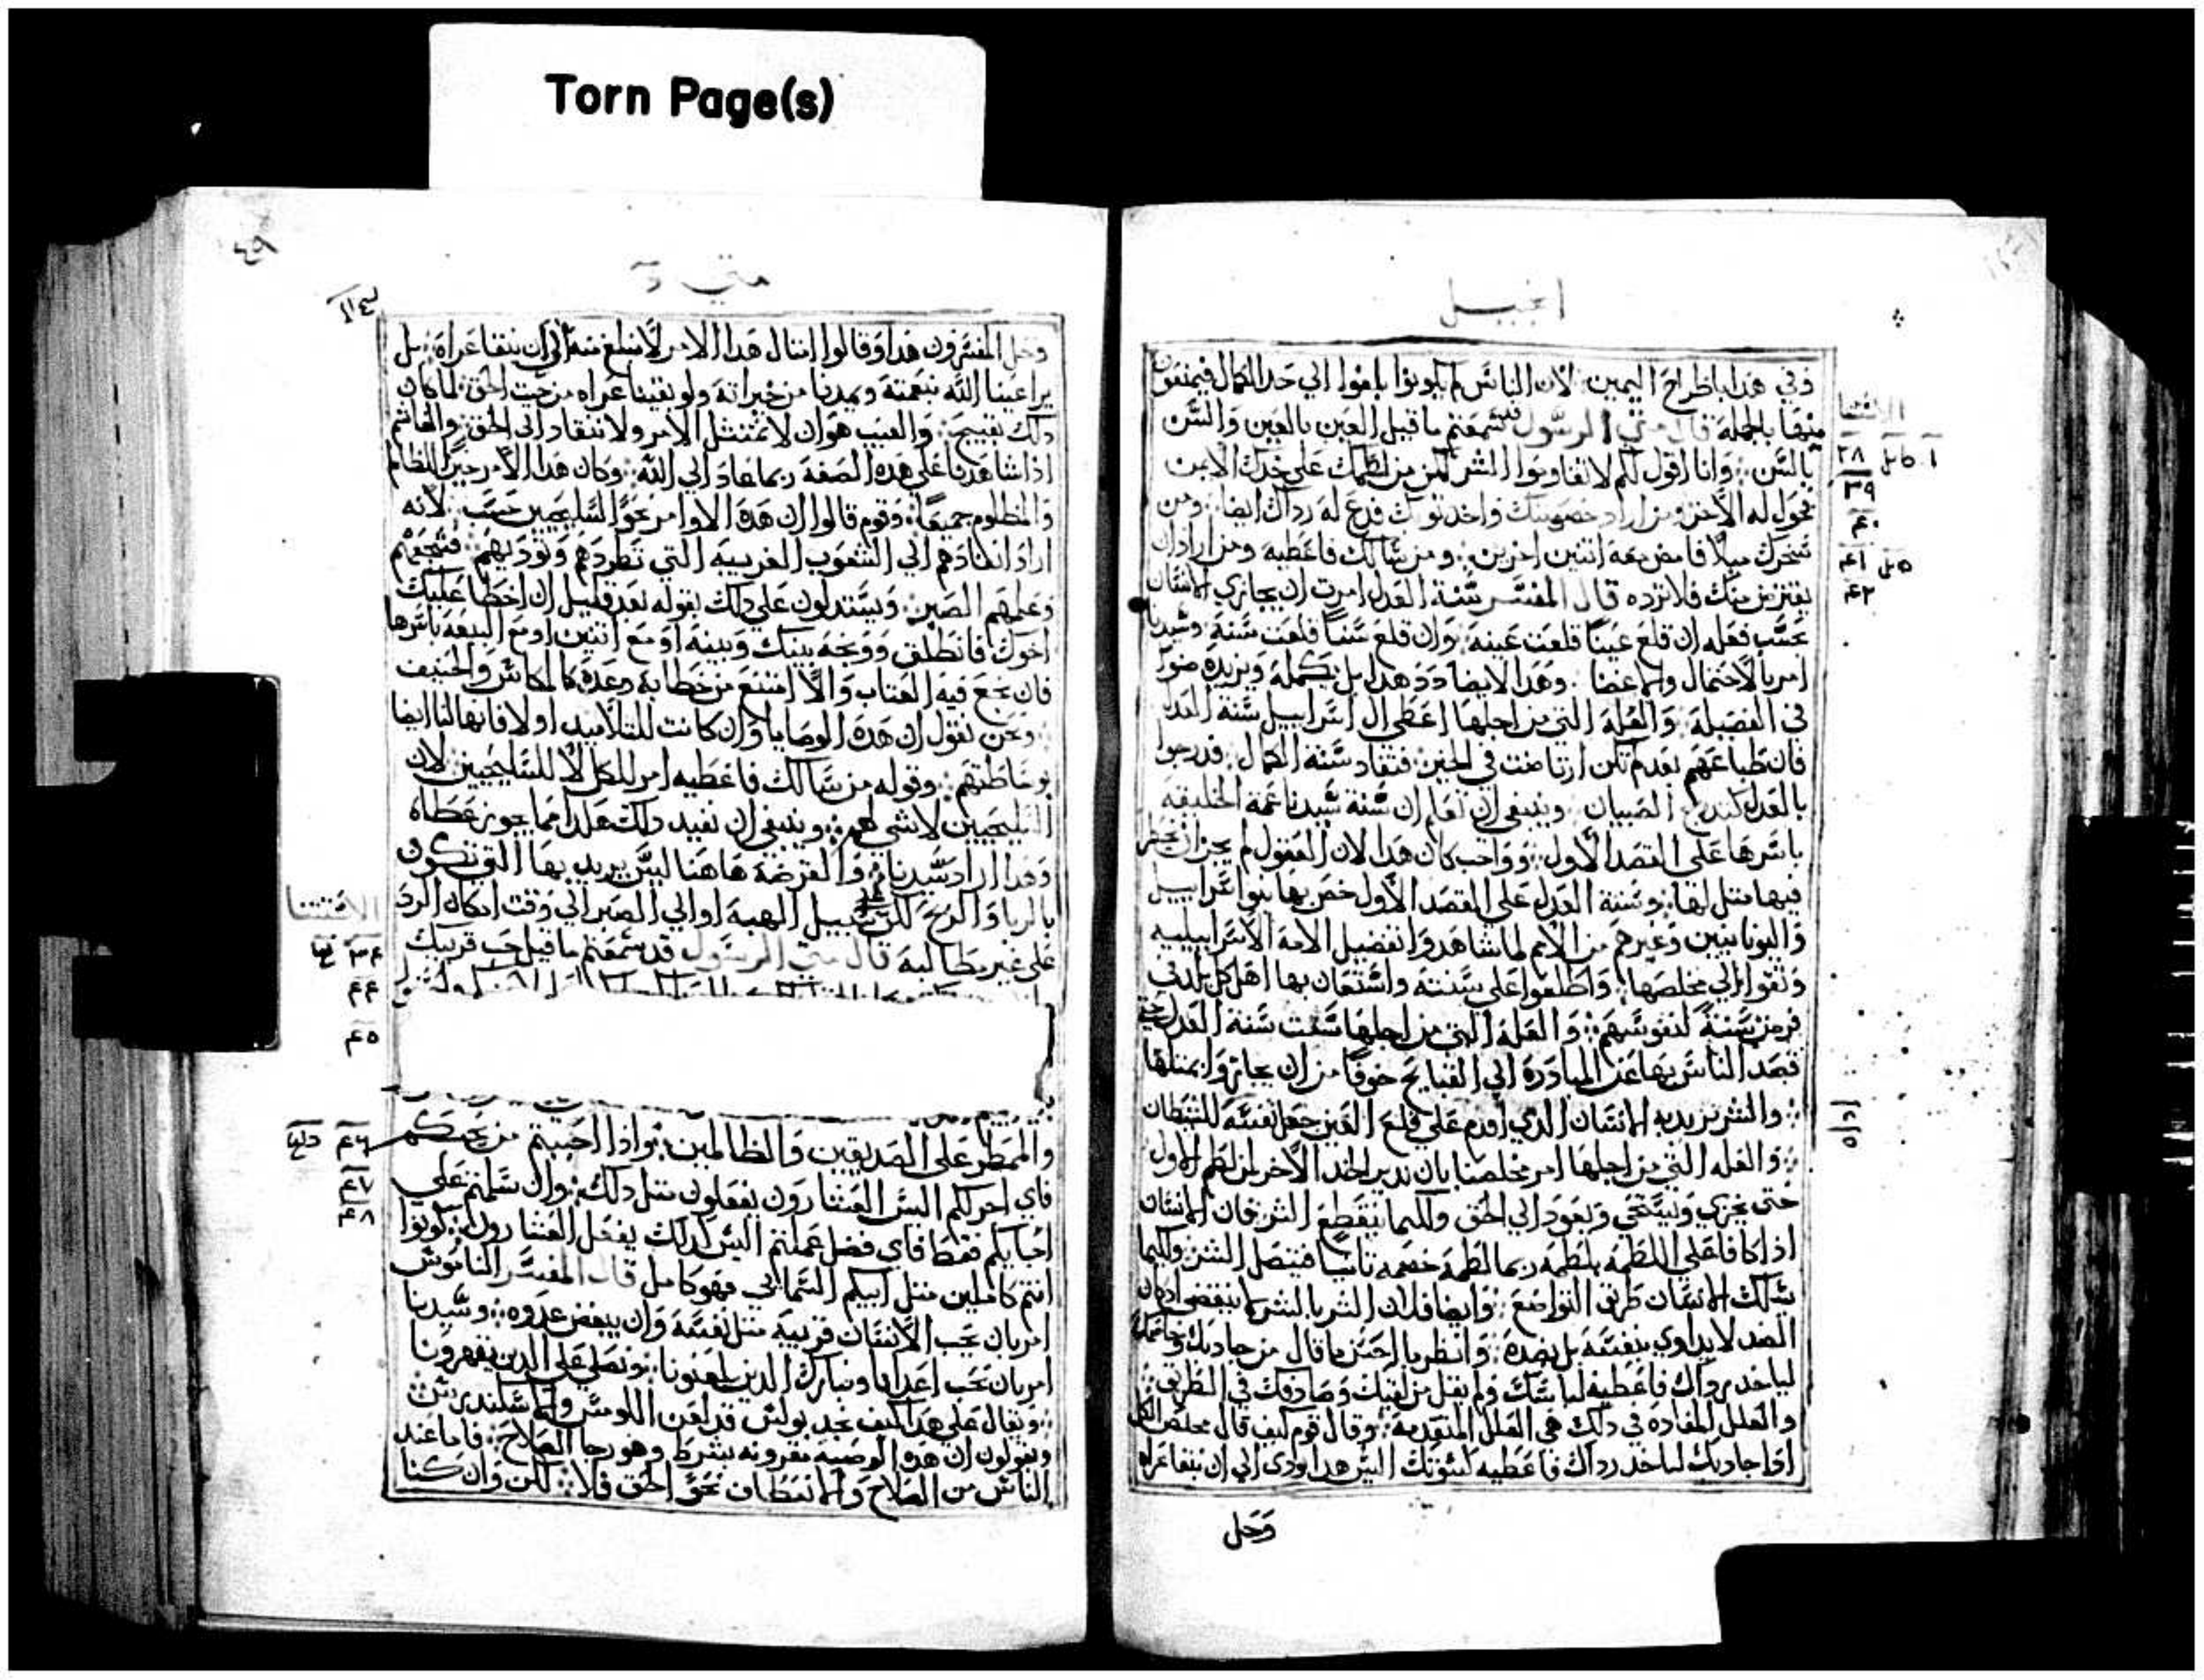 Torn Page(s)
انجيل
وفي هدا باطراح اليمين لان الناس لم يكونوا بلغوا الي حد الكمال فيمنعون
منها بالجملة قال متي الرسول قد سمعتم ما قيل العين بالعين والسن
بالسن وانا اقول لكم لا تقاوموا الشر لكن من لطمك علي خدك الايمن
فحول له الاخر ومن اراد خصومتك واخد توبك فدع له رداك ايضا ومن
سخرك ميلا فامض معه اتنين اخرين ومن سالك فاعطيه ومن اراد ان
يقترض منك فلا ترده قال المفسر سنة العدل امرت ان يجازي الانسان
بحسب فعله ان قلع عينا قلعت عينه وان قلع سنا قلعت سنه وسيدنا
امر بالاحتمال والاغضا وهدا لا يضادد هدا بل يكمله ويزيده ضوا
في الفضيلة والعلة التي من اجلها اعطي ال اسراييل سنة العدل
فان طباعهم بعد لم تكن ارتاضت في الخير فتقاد سنة الكمال فدرجوا
بالعدل كتدريج الصبيان وينبغي ان تعلم ان سنة سيدنا عمة الخليقة
باسرها علي القصد الاول وواجب كان هدا لان العقول لم يجز ان
فيها متل لها وسنة العدل علي القصد الاول خص بها بنوا اسراييل
واليونانيين وغيرهم من الامم لما شاهدوا تفضيل الامة الاسراييلية
وتقوا الي مخلصها واطلعوا علي سننه واستعان بها اهل كل
فرمز سننه لنفوسهم والعلة التي من اجلها سنت سنة العدل حتي
تصد الناس بها عن المبادرة الي القبايح خوفا من ان يجازوا بمتلها
والشرير يريد به الانسان الدي اقدم علي قلع العين جعل نفسه للشيطان
والعلة التي من اجلها امر مخلصنا بان ندير الخد الاخر لمن لطم الاول
حتي يخزي ويستحي ويعود الي الحق ولكيما ينقطع الشر فان الانسان
ادا كافا علي اللطمة بلطمة ربما لطمه خصمه تانيا فيتصل الشر ولكيما
يسلك الانسان طريق التواضع وايضا فلان الشر بالشر لا ينقضي اد كان
الضد لا يداوي بنفسه بل بضده وانظر بالحسن ما قال من جادبك وخاصمك
لياخد رداك فاعطيه لباسك ولم يقل من لقيك وصادفك في الطريق
والعلل المفادة في دلك هي العلل المتقدمة وقال قوم كيف قال مخلص الكل
ادا جادبك لياخد رداك فاعطيه كسوتك اليس هدا يودي الي ان نبقا عراه
وحل
الاقتنا
٣٨
٣٩
٤٠
٤١
٤٢
متي
وحل المفسرون هدا وقالوا امتال هدا الامر لا نبلغ منه الي ان نبقا عراه بل
يراعينا الله بنعمته ويمدنا من خيراته ولو بقينا عراه من حيت الحق لما كان
دلك بقبيح والعيب هو ان لا نمتتل الامر ولا ننقاد الي الحق والغاشم
ادا شاهدنا علي هده الصفة ربما عاد الي الله وكان هدا الامر خيرا للظالم
والمظلوم جميعا وقوم قالوا ان هده الاوامر نحو السليحيين حسب لانه
اراد انفادهم الي الشعوب الغريبة التي تطردهم وتوديهم فشجعهم
وعلمهم الصبر ويستدلون علي دلك بقوله بعد قليل ان اخطا عليك
اخوك فانطلق ووبخه بينك وبينه او مع اتنين او مع البيعة باسرها
فان نجع فيه العتاب والا امتنع من خطابه وعده كالمكاس والحنيف
ونحن نقول ان هده الوصايا وان كانت للتلاميد اولا فانها لنا ايضا
بوساطتهم وقوله من سالك فاعطيه امر للكل لا للسليحيين لان
السليحيين لا شي لهم وينبغي ان نفيد دلك هكدا مما يجوز عطاه
وهدا اراد سيدنا والقرضة هاهنا ليس يريد بها التي تكون
بالربا والربح لكن علي سبيل الهبة او الي الصبر الي وقت امكان الرد
علي غير مطالبة قال متي الرسول قد سمعتم ما قيل حب قريبك
والممطر علي الصديقين والظالمين وادا احببتم من يحبكم
فاي اجر لكم اليس العشارون يفعلون متل دلك وان سلمتم علي
احبايكم فقط فاي فضل عملتم اليس كدلك يفعل العشارون كونوا
انتم كاملين متل ابيكم السمايي فهو كامل قال المفسر الناموس
امر بان يحب الانسان قريبه متل نفسه وان يبغض عدوه وسيدنا
امر بان نحب اعدانا ونبارك الدين يلعنونا ونصلي علي الدين يقهرونا
ويقال علي هدا كيف نجد بولس قد لعن اللومس والاسكندريس
ويقولون ان هده الوصية مقرونة بشرط وهو رجا الصلاح فاما عند
الناس من الصلاح والانعطاف نحو الحق فلا لكن وان كنا
الاقتنا
٤٣
٤٤
٤٥
٤٦
٤٧
٤٨